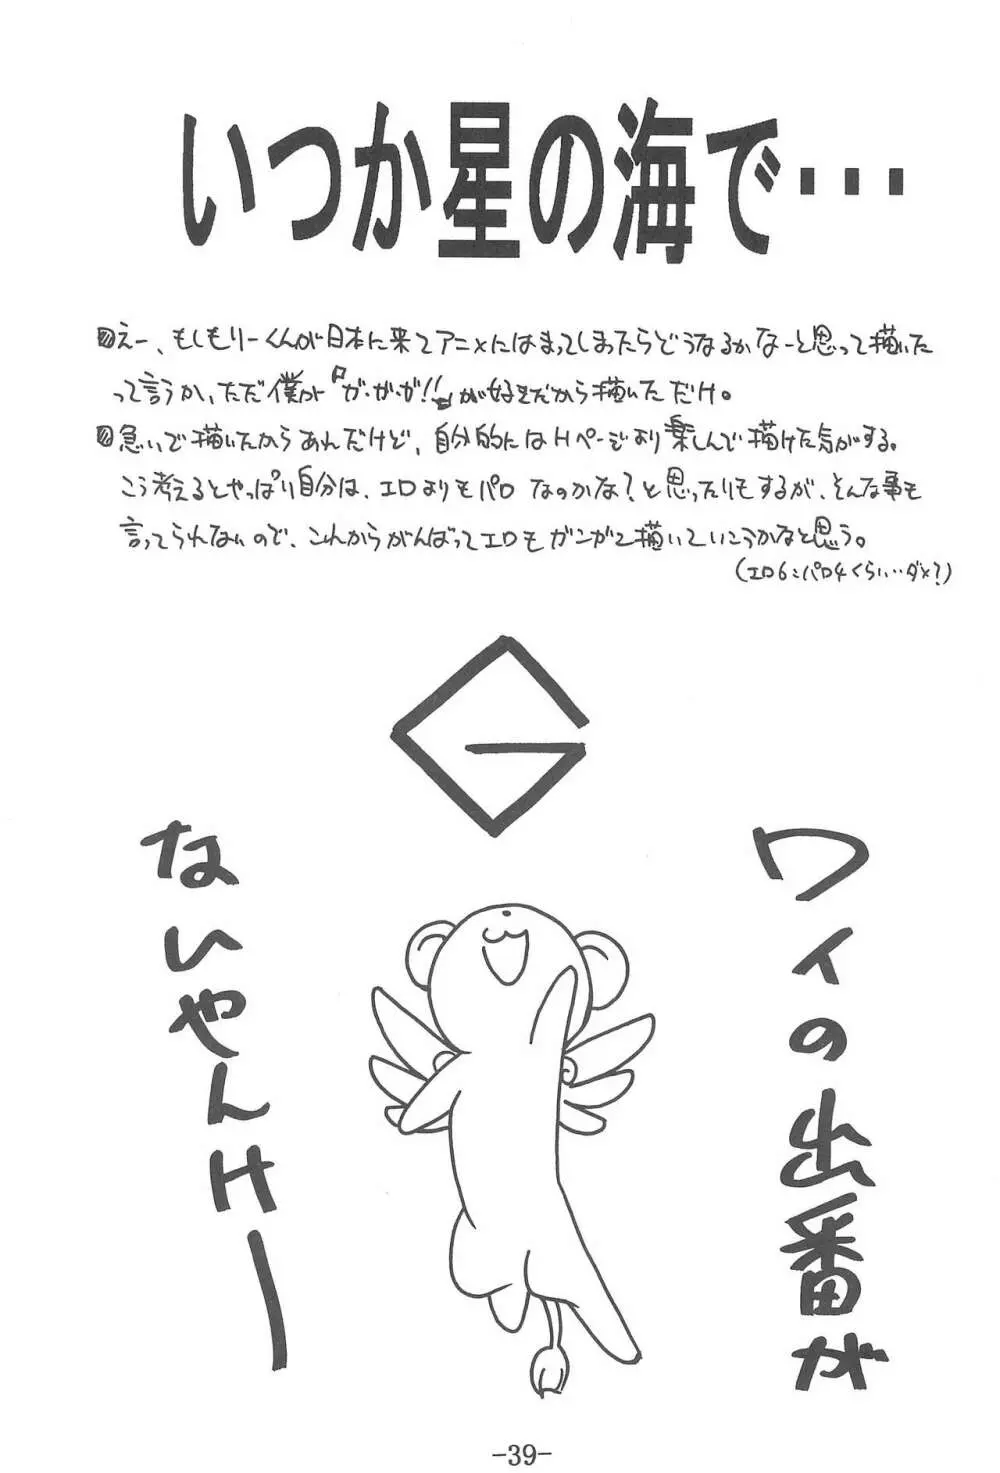 いつか星の海で…
えー、もしもリーくんが日本に来てアニメにはまってしまったらどうなるかなーと思って描いた
って言うか、ただ僕が『ガ・ガ・ガ!!』が好きだから描いただけ。
急いで描いたからあんだけど、自分的にはHページより楽しんで描けた気がする。
こう考えるとやっぱり自分は、エロよりもパロなのかな?と思ったりもするが、そんな事も
言ってられないので、これからがんばってエロもガンガン描いていこうかなと思う。
(エロ6:パロ4くらい…ダメ?)
G
ワイの出番が
ないやんけー
-39-